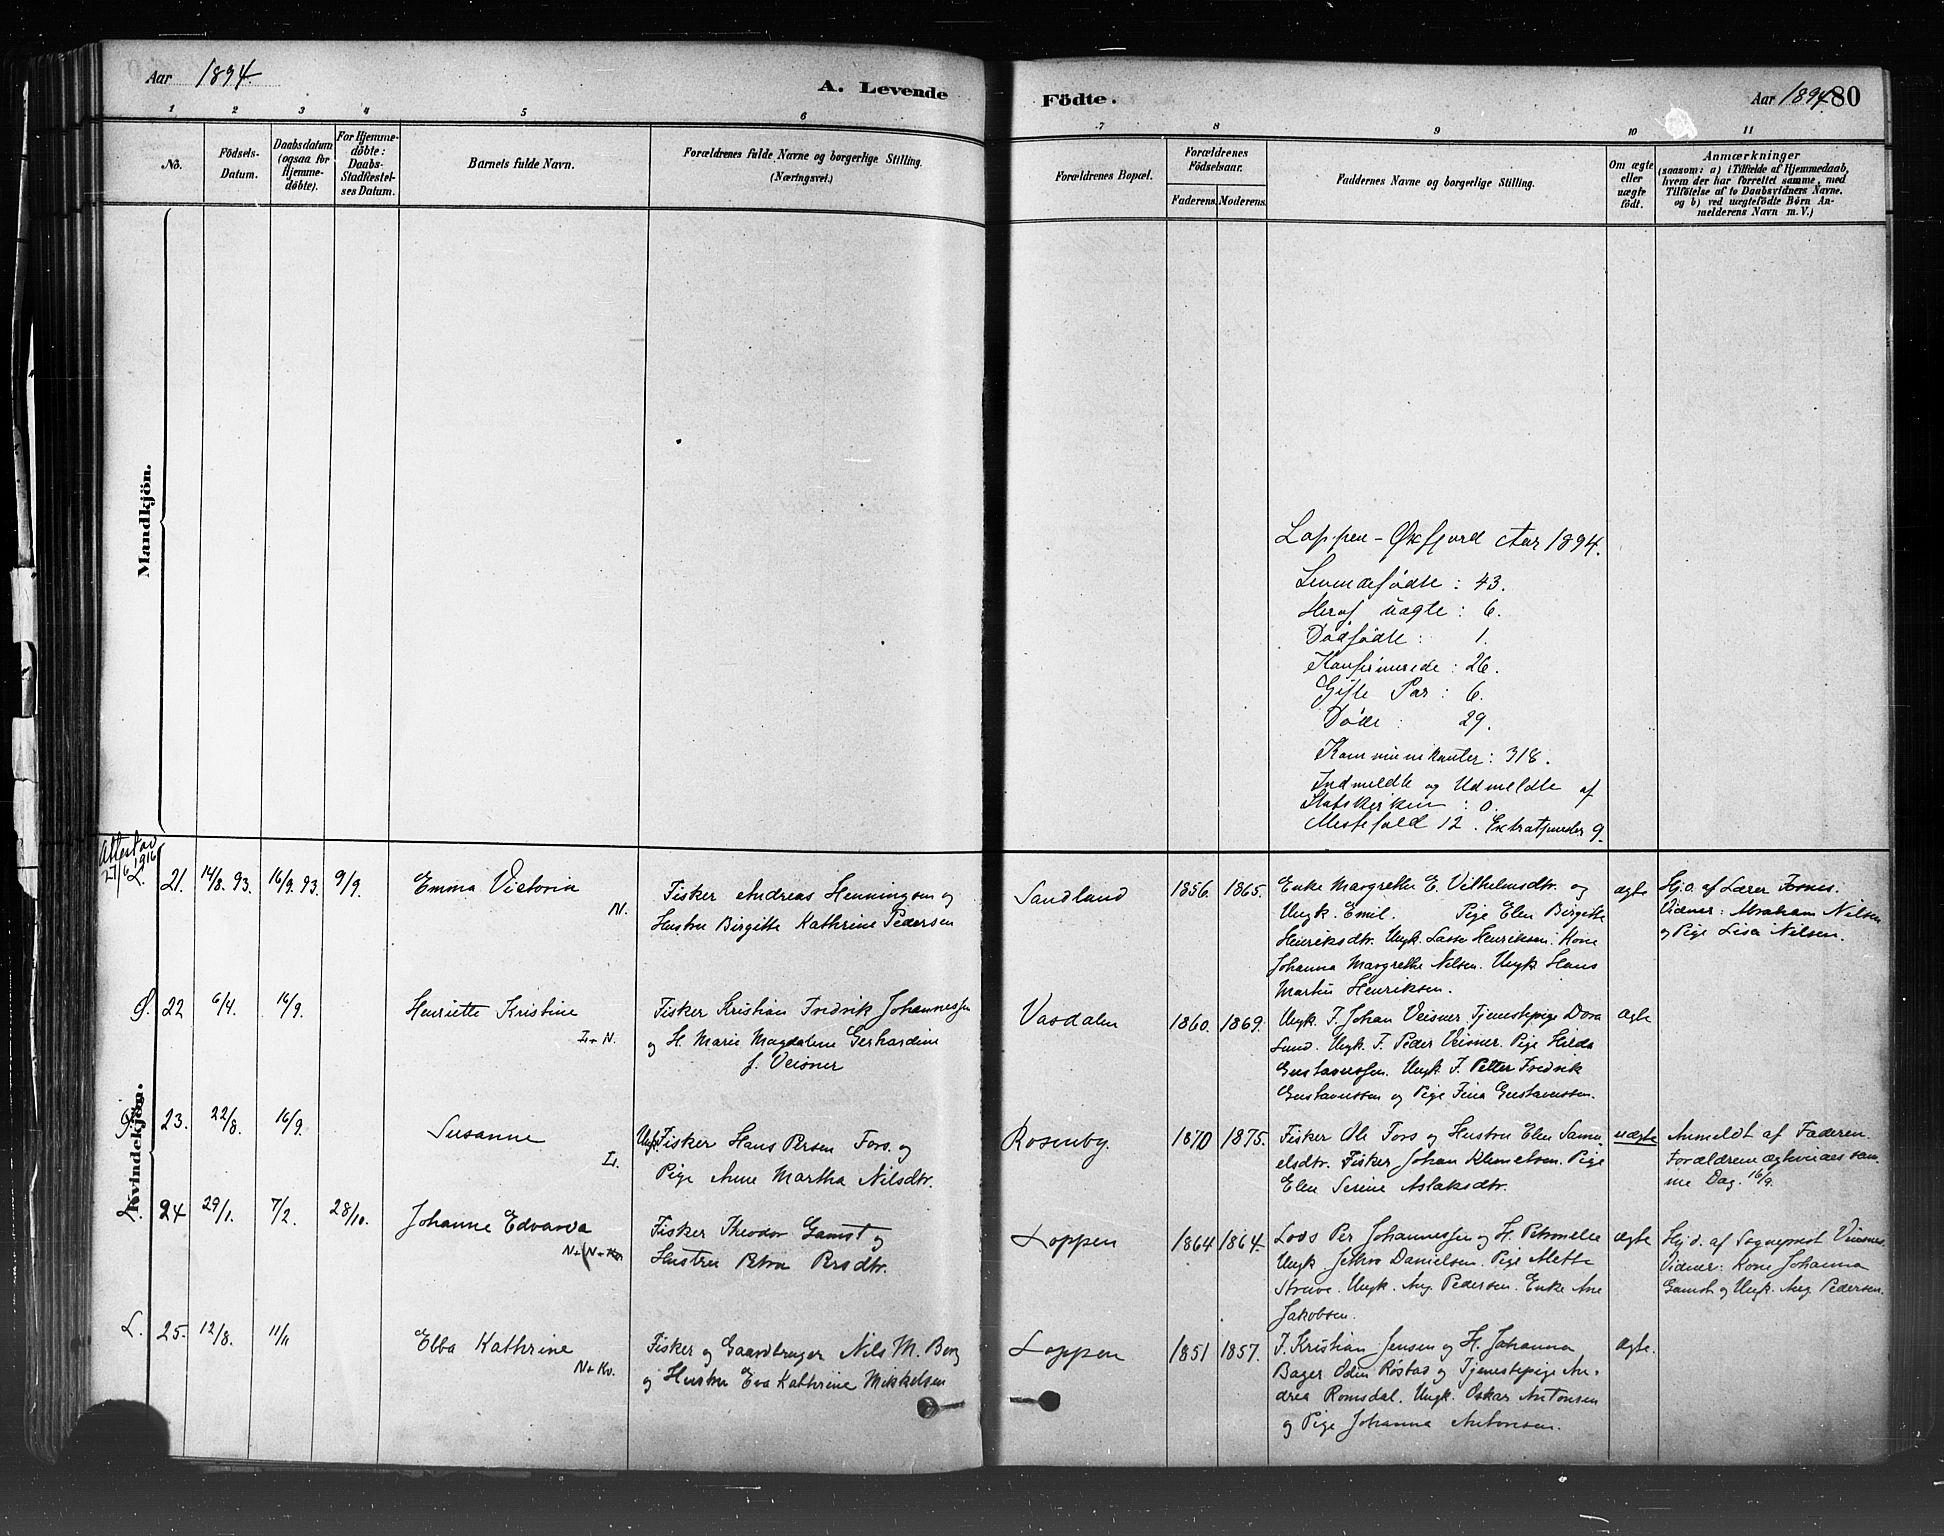 Aar 1894.
A. Levende Födte.
Aar 1894. 80
1 2 3 4 5 6 7 8 9 10 11
No.
Födsels-Datum.
Daabsdatum (ogsaa for Hjemme-døbte).
For Hjemme-döbte: Daabs-Stadfæstel-ses Datum.
Barnets fulde Navn.
Forældrenes fulde Navne og borgerlige Stilling.
(Næringsvei.)
Forældrenes Bopæl.
Forældrenes Födselsaar.
Faderens. Moderens.
Faddernes Navne og borgerlige Stilling.
Om ægte eller uægte födt.
Anmærkninger
(saasom: a) i Tilfælde af Hjemmedaab,
hvem der har forrettet samme, med
Tilföielse af to Daabsvidners Navne.
og b) ved uægtefödte Börn An-
melderens Navn m. V.)
Mandkjön.
Loppen - Øxfjord Aar 1894.
Levendefødte : 43.
Heraf uægte : 6.
Dødfødte : 1.
Konfirmerede : 26.
Gifte Par : 6.
Døde : 29.
Kommunikanter : 318.
Indmeldte og Udmeldte af
Statskirken : 0.
Messefald 12. Extratjenester 9.
Kvindekjön.
Attest av
27/6 1916
L. 21. 14/8 93. 16/9 93. 9/9. Emma Victoria
N.
Fisker Andreas Henningsen og
Hustru Birgitte Kathrine Pedersen
Sandland 1856. 1865.
Enke Margrethe E. Vilhelmsdtr. og
Ungk. Emil. Pige Elen Birgitte
Henriksdtr. Ungk. Lasse Henriksen. Kone
Johanna Margrethe Nilsen. Ungk. Hans
Martin Henriksen.
ægte
Hj.d. af Lærer Fosnes.
Vidner: Abraham Nilsen
og Pige Lisa Nilsen.
Ø. 22 6/4. 16/9. Henriette Kristine
L + N.
Fisker Kristian Fredrik Johannessen
og H. Marie Magdalene Gerhardine
f. Veisner
Vasdalen 1860. 1869.
Ungk. F. Johan Veisner. Tjenestepige Dora
Lund. Ungk. F. Peder Veisner. Pige Hilda
Gustavussen. Ungk. F. Petter Fredrik
Gustavussen og Pige Fina Gustavussen.
ægte
Ø. 23. 22/8. 16/9. Susanne
L.
Ungk. Fisker Hans Persen Fors. og
Pige Anne Martha Nilsdtr.
Rosenby. 1870 1875.
Fisker Ole Fors og Hustru Elen Samu-
elsdtr. Fisker Johan Klemetsen. Pige
Elen Serine Aslaksdtr.
uægte
Anmeldt af Faderen.
Forældrene ægteviedes sam-
me Dag. 16/9.
L. 24 29/1. 7/2. 28/10. Johanne Edvarda
N + (N + Kv.
Fisker Theodor Gamst og
Hustru Petra Persdtr.
Loppen 1864 1864.
Lods Per Johannessen og H. Petronelle
Ungk. Jethro Danielsen. Pige Alette
Struve. Ungk. Aug. Pedersen. Enke Ane
Jakobsen.
ægte
Hj.d. af Sogneprest
Vidner: Kone Johanna
Gamst og Ungk. Aug Pedersen.
L. 25. 12/8. 11/11 Ebba Kathrine
N + Kv.
Fisker og Gaardbruger Nils M. Berg
og Hustru Eva Kathrine Mikkelsen
Loppen 1851 1857.
F. Kristian Jensen og H. Johanna
Bager Odin Röstad og Tjenestepige An-
drea Romsdal. Ungk. Oskar Antonsen
og Pige Johanna Antonsen.
ægte.